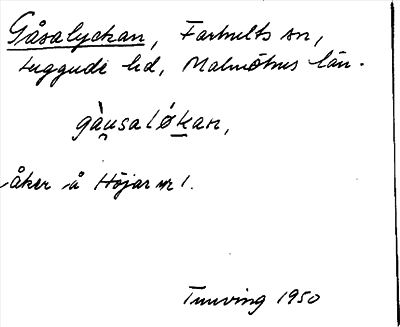 Gåsalyckan, Farhults sn,
Luggude hd, Malmöhus län.
gàu̯salökan,
åker å Höjar nr 1.
Tuvving 1950